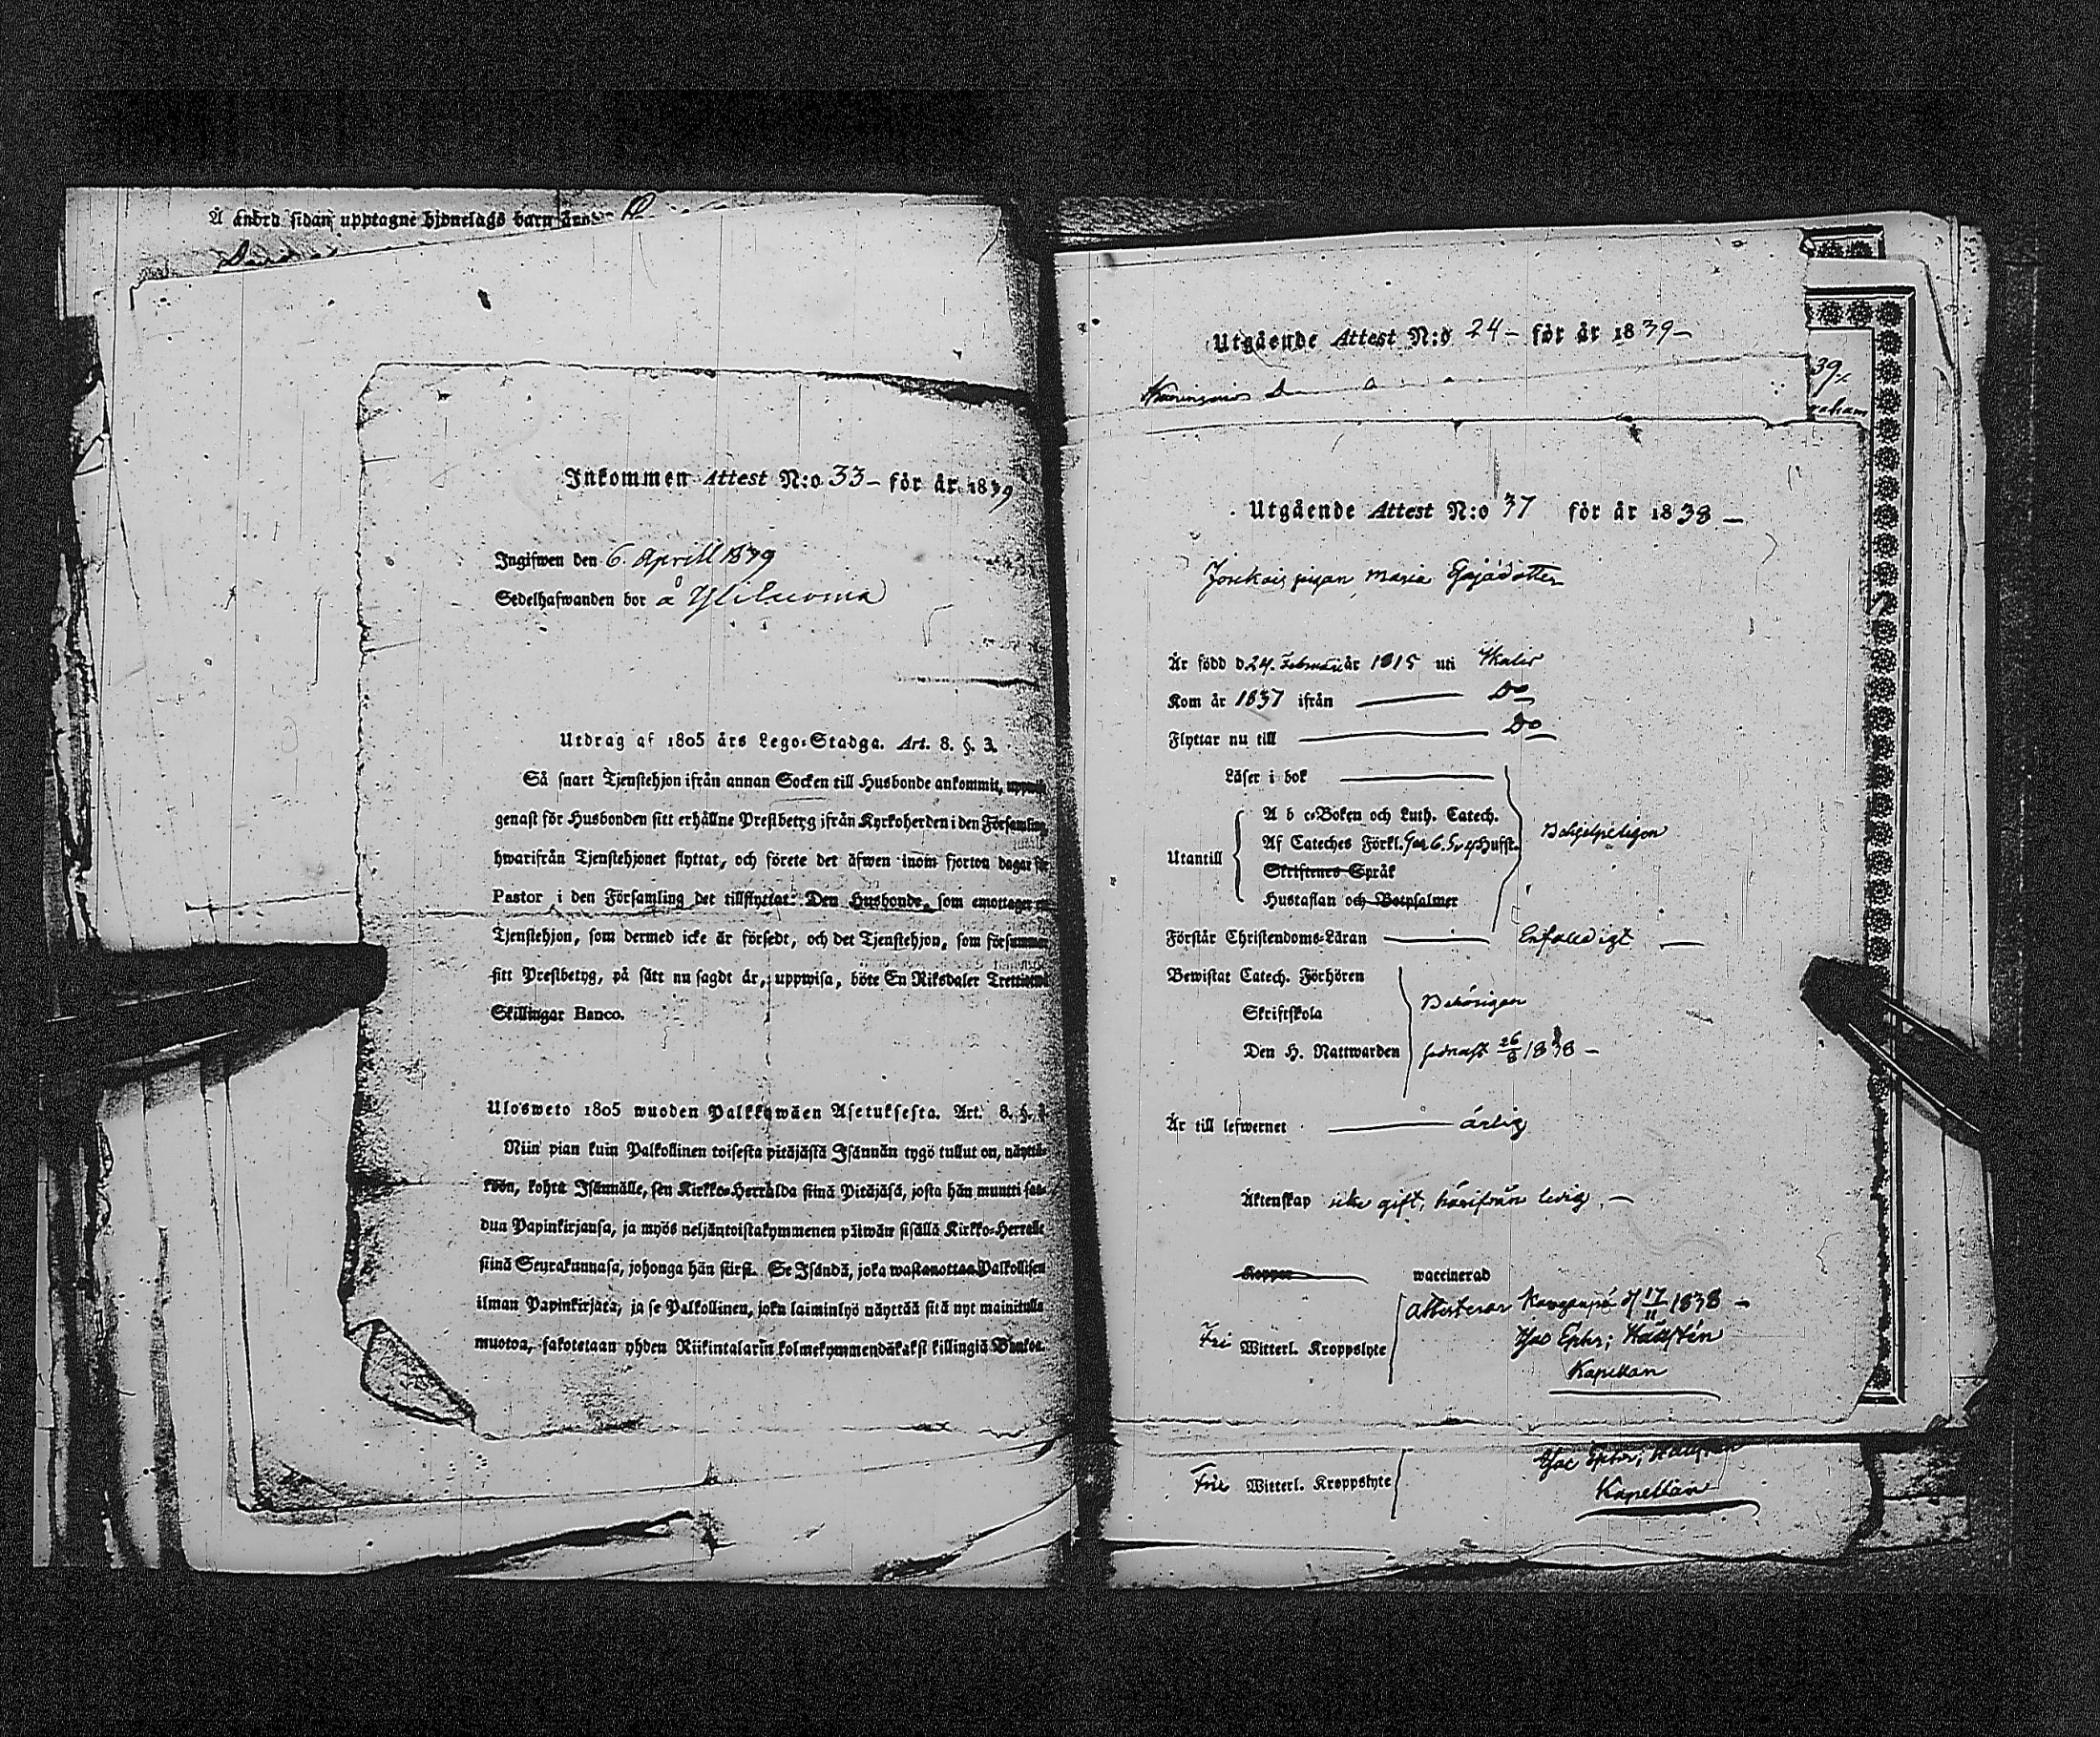 Å andra sidan upptagne hjonelags barn äro
Inkommen Attest N:o 33 – för år 1839
Ingifwen den 6. Aprill 1839
Sedelhafwanden bor å Yliluoma
Utdrag af 1805 års Lego-Stadga. Art. 8. §. 3.
Så snart Tjenstehjon ifrån annan Socken till Husbonde ankommit, uppwise
genast för Husbonden sitt erhållne Prestbetyg ifrån Kyrkoherden i den Församling
hwarifrån Tjenstehjonet flyttat, och förete det äfwen inom fjorton dagar för
Pastor i den Församling det tillflyttat. Den Husbonde, som emottager ett
Tjenstehjon, som dermed icke är försedt, och det Tjenstehjon, som försummar
sitt Prestbetyg, på sätt nu sagdt är, uppwisa, böte En Riksdaler Trettiotwå
Skillingar Banco.
Ulosweto 1805 wuoden Palkkawäen Asetuksesta. Art. 8. §. 3.
Niin pian kuin Palkollinen toisesta pitäjästä Isännän tygö tullut on, näyttä-
köön, kohta Isännälle, sen Kirkko-Herralda siinä Pitäjäsä, josta hän muutti saa-
dun Papinkirjansa, ja myös neljäntoistakymmenen päiwän sisällä Kirkko-Herralle
siinä Seurakunnasa, johonga hän siirsi. Se Isändä, joka wastanottaa Palkollisen
ilman Papinkirjata, ja se Palkollinen, joka laiminlyö näyttää sitä nyt mainitulla
muotoa, sakotetaan yhden Riikintalarin kolmekymmendäkaksi killingiä Bankoa.
Utgående Attest N:o 24 – för år 1839 –
39
raham
Utgående Attest N:o 37 för år 1838 –
pigan Maria
Är född d 24. Februari år 1815 uti
Kom år 1837 ifrån Do
Flyttar nu till Do
Läser i bok
A b c-Boken och Luth. Catech.
Af Cateches Förkl. Hufst.
Utantill
Skriftenes Språk
Hustaflan och Botpsalmer
Behjelpeligen
Förstår Christendoms-Läran Enfaldigt
Bewistat Catech. Förhören
Skriftskola
Behörigen
Den H. Nattwarden sednast 26/8 1838 –
Är till lefwernet ärlig
Äktenskap icke gift, härifrån ledig. –
Koppor waccinerad
Attesterar d 17/11 1838 –
Fri Witterl. Kroppslyte
Jac Ephr; Hällstén
Kapellan
Jac Ephr; Hällstén
Frie Witterl. Kroppslyte
Kapellan